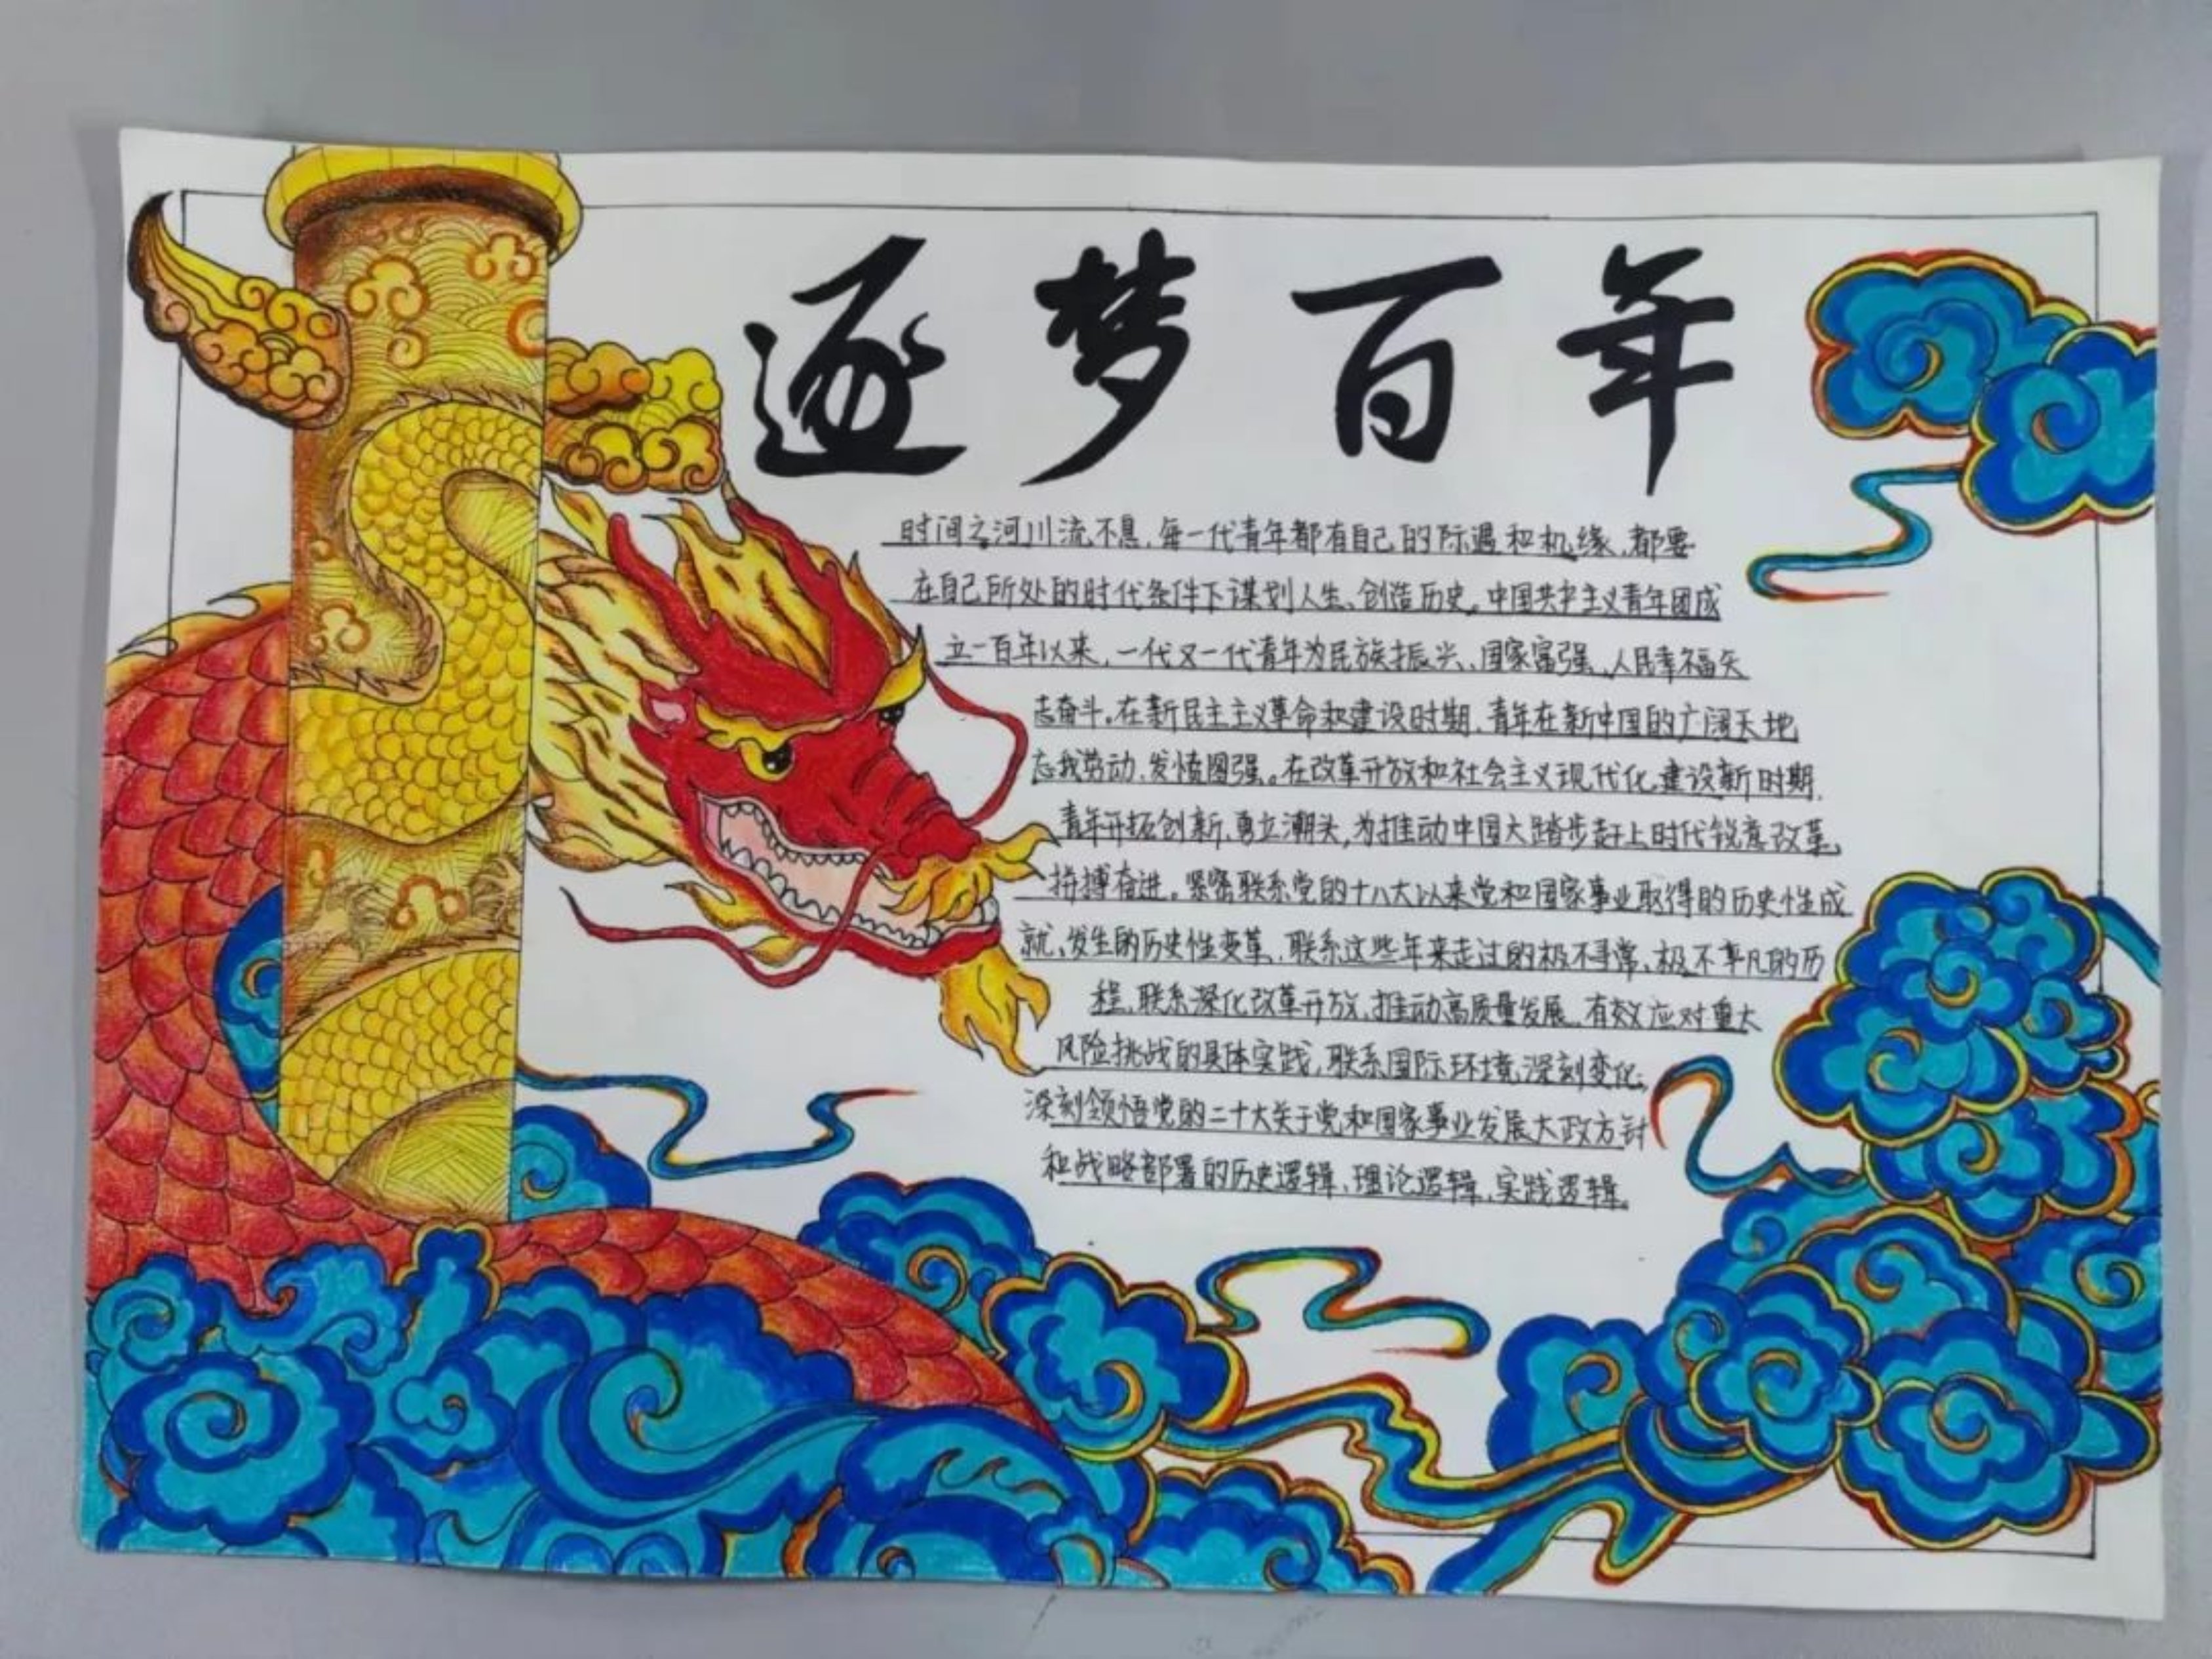 逐梦百年
时间之河川流不息,每一代青年都有自己的际遇和机缘,都要
在自己所处的时代条件下谋划人生、创造历史。中国共产主义青年团成
立一百年以来,一代又一代青年为民族振兴、国家富强、人民幸福矢
志奋斗。在新民主主义革命和建设时期,青年在新中国的广阔天地
忘我劳动、发愤图强。在改革开放和社会主义现代化建设新时期,
青年开拓创新、勇立潮头,为推动中国大踏步赶上时代锐意改革、
拼搏奋进。紧密联系党的十八大以来党和国家事业取得的历史性成
就、发生的历史性变革,联系这些年来走过的极不寻常、极不平凡的历
程,联系深化改革开放、推动高质量发展、有效应对重大
风险挑战的具体实践,联系国际环境深刻变化,
深刻领悟党的二十大关于党和国家事业发展大政方针
和战略部署的历史逻辑、理论逻辑、实践逻辑。